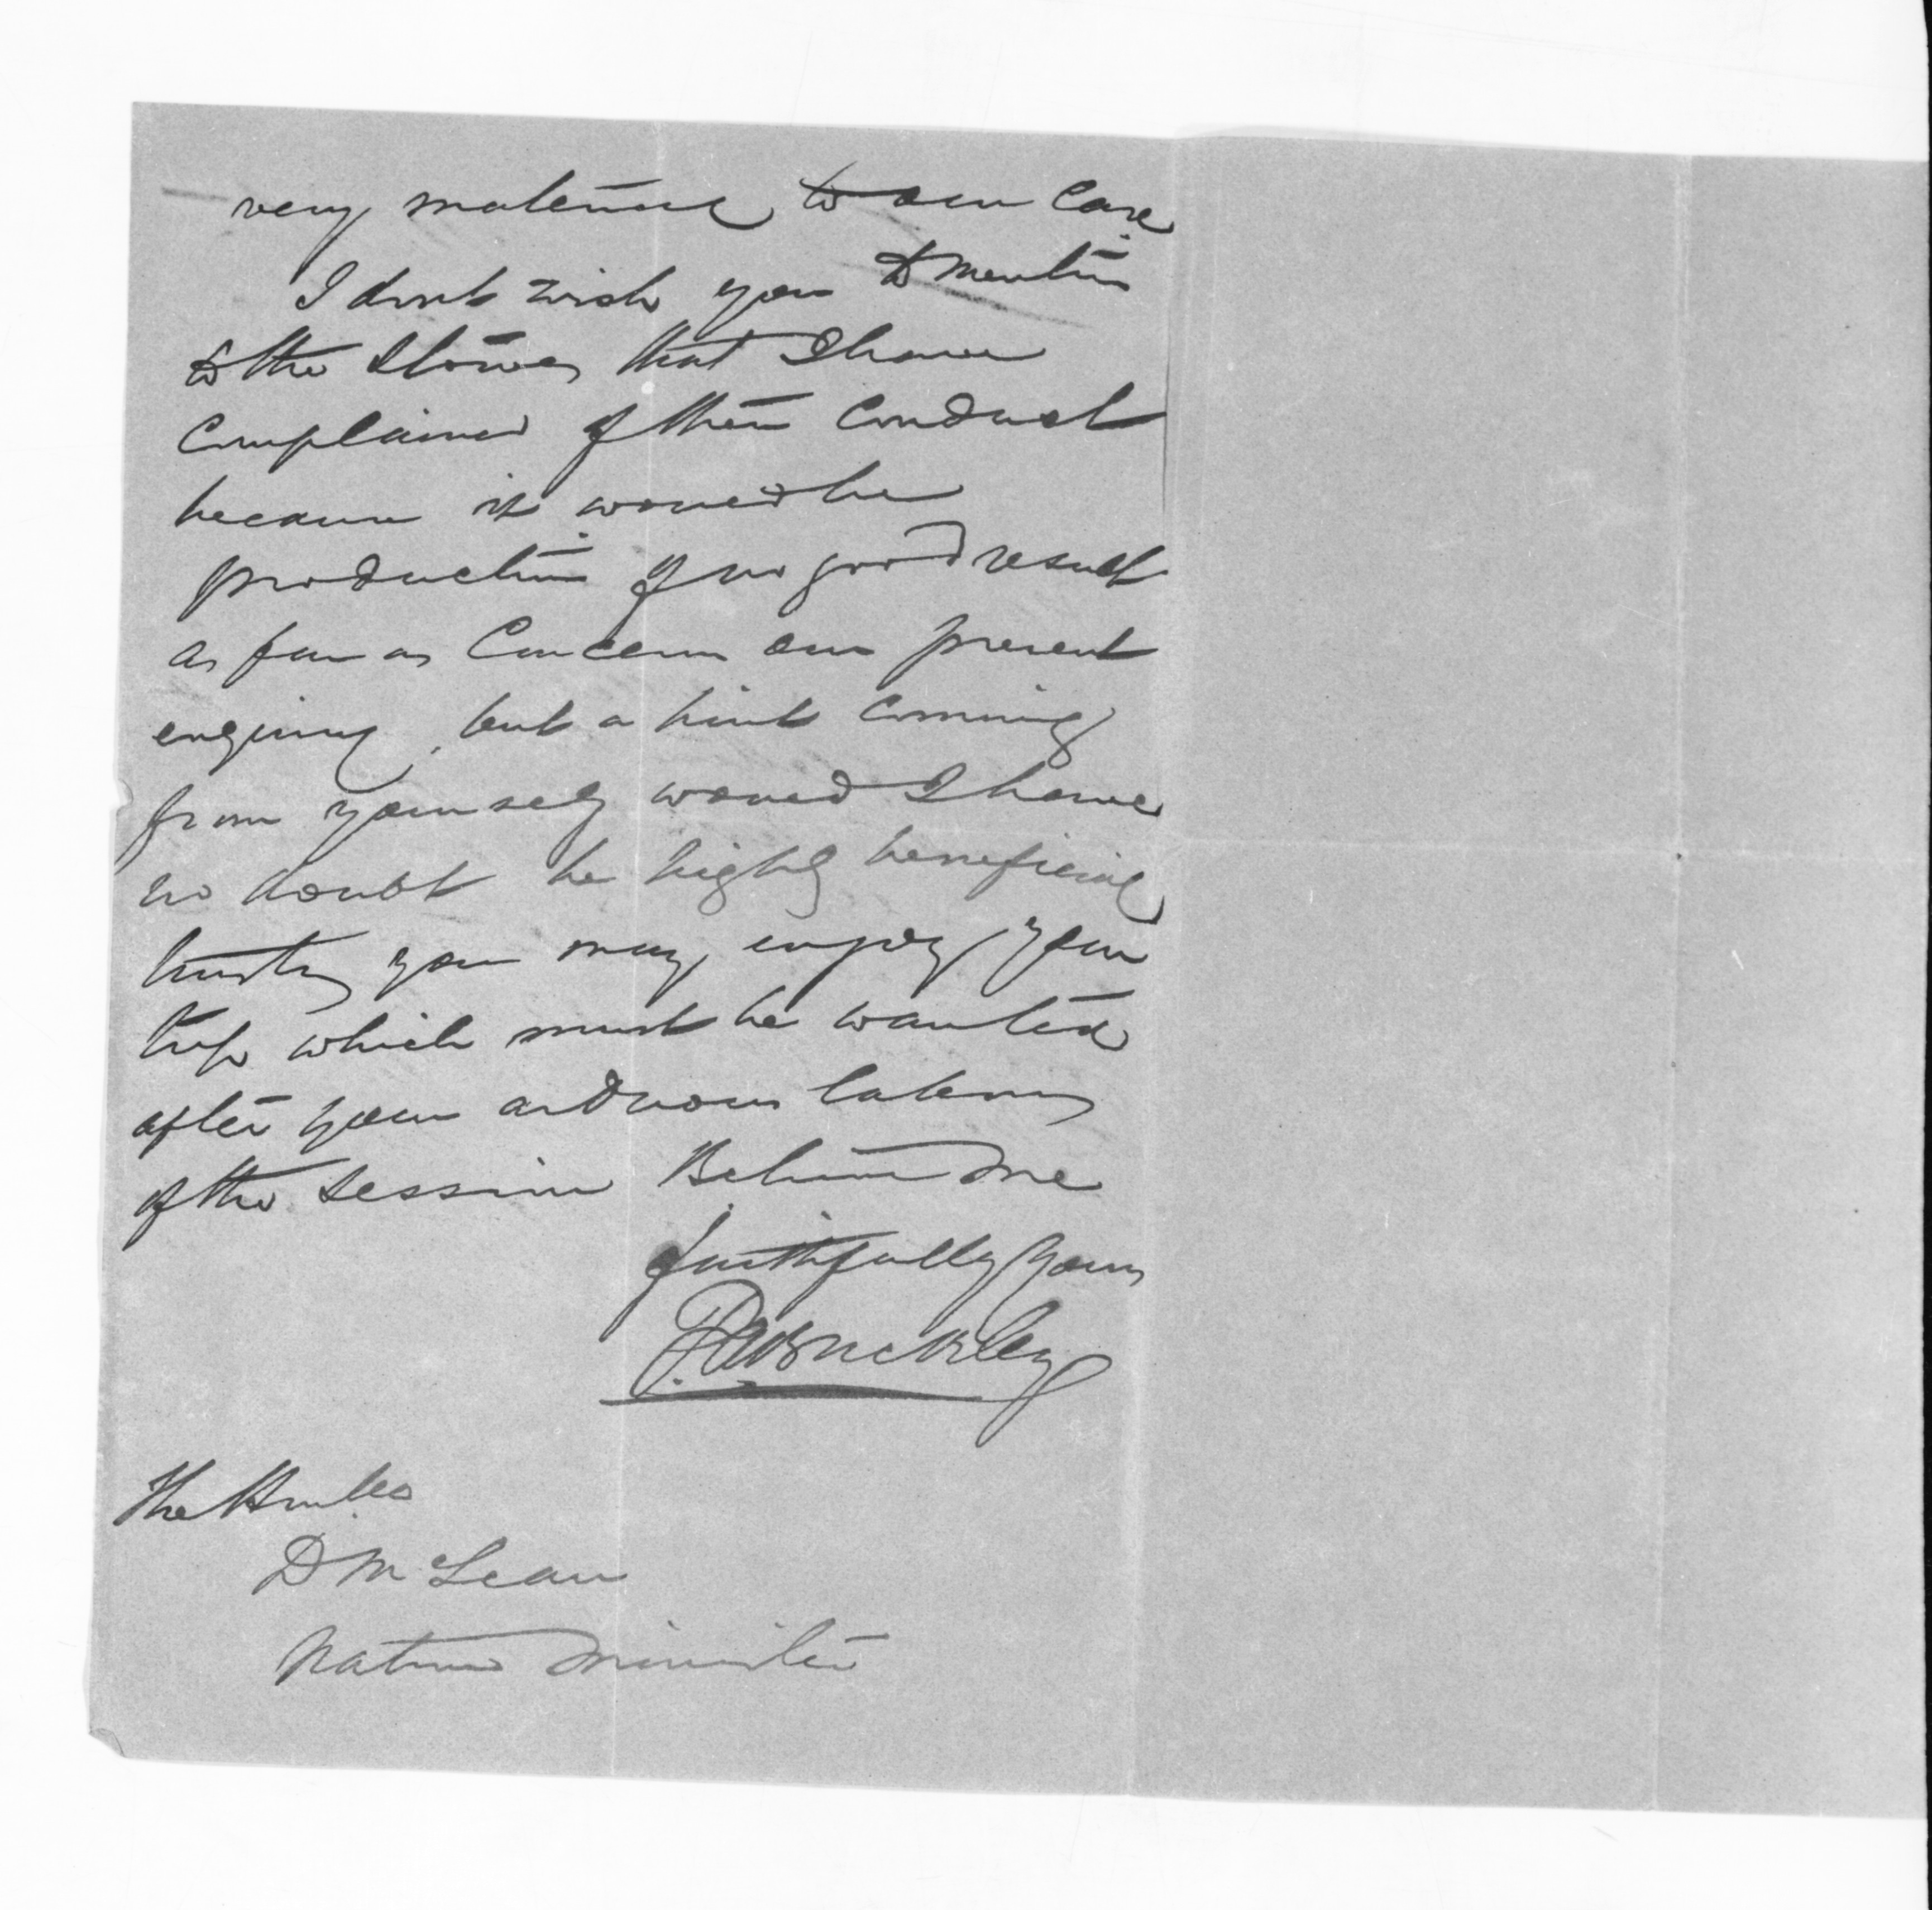 very material to our case
I dont wish you to mention
to the Stores that I have
complained of their conduct
because it would be
production of no good result
as far as concern our present
enquiry, but a hint coming
from yourself would I have
no doubt be highly beneficial
trusting you may enjoy your
trip which must be wanted
after your arduous labours
of the session Believe me
faithfully yours
Buckley
The Honble
D McLean
Native Minister